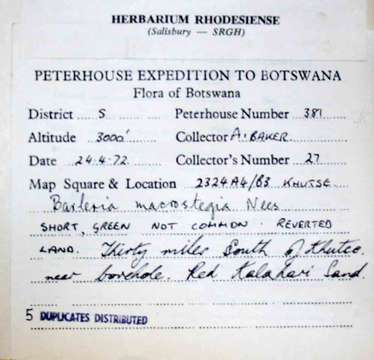 HERBARIUM RHODESIENSE
(Salisbury — SRGH)
PETERHOUSE EXPEDITION TO BOTSWANA
Flora of Botswana
District S Peterhouse Number 381
Altitude 3000' Collector A. BAKER
Date 24.4.72 Collector's Number 27
Map Square & Location 2324A4/B3 KHUTSE
Barleria macrostegia Nees
SHORT, GREEN NOT COMMON REVERTED
LAND. Thirty miles South of
near borehole. Red Kalahari Sand.
5 DUPLICATES DISTRIBUTED